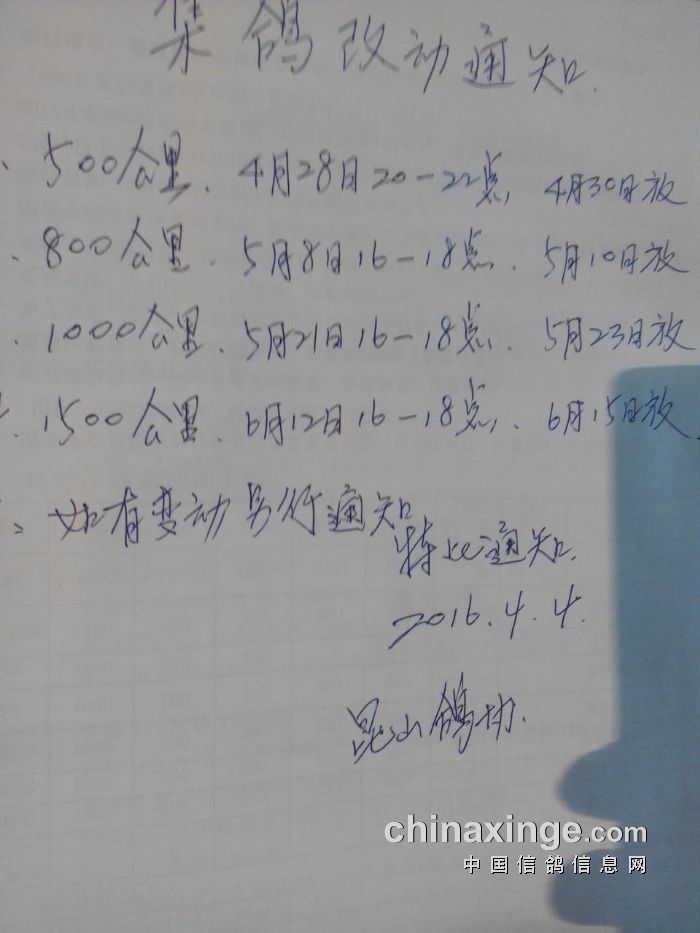 集鸽改动通知.
、500公里、4月28日20-22点, 4月30日放
、800公里、5月8日16-18点、5月10日放
、1000公里、5月21日16-18点、5月23日放
、1500公里、6月12日16-18点、6月15日放、
、如有变动另行通知
特此通知.
2016.4.4.
昆山鸽协.
chinaxinge.com
中国信鸽信息网